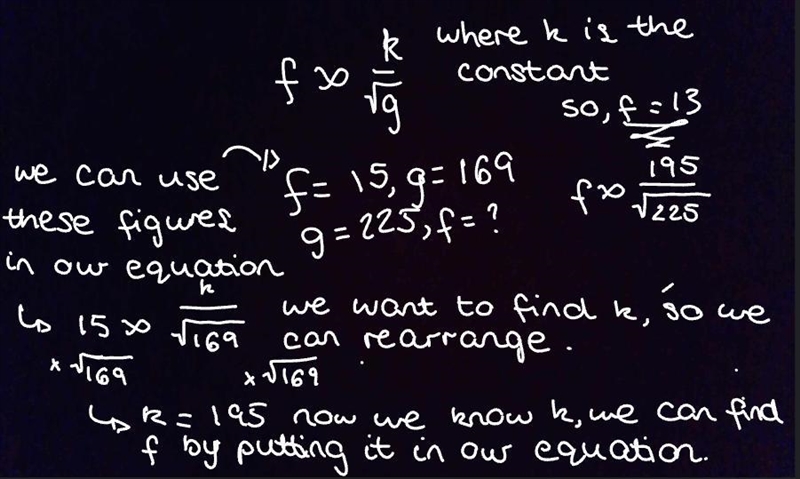 f ∝ k/√g where k is the
constant
so, f = 13
we can use
these figures
in our equation
f = 15, g = 169
g = 225, f = ?
f ∝ 195/√225
15 ∝ k/√169 we want to find k, so we
can rearrange.
×√169 ×√169
k = 195 now we know k, we can find
f by putting it in our equation.